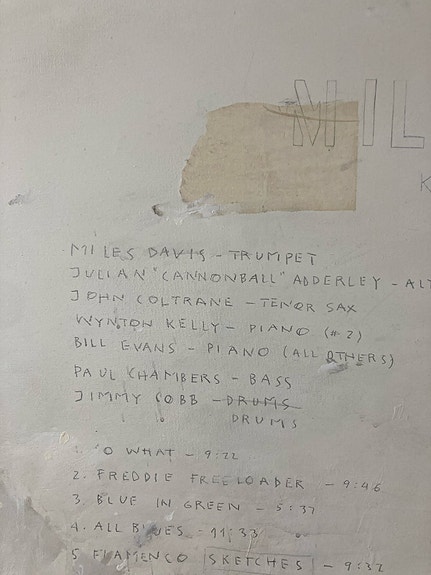 MIL
K
MILES DAVIS - TRUMPET
JULIAN "CANNONBALL" ADDERLEY - ALT
JOHN COLTRANE - TENOR SAX
WYNTON KELLY - PIANO (#2)
BILL EVANS - PIANO (ALL OTHERS)
PAUL CHAMBERS - BASS
JIMMY COBB - DRUMS
DRUMS
1. O WHAT - 9:22
2. FREDDIE FREELOADER - 9:46
3. BLUE IN GREEN - 5:37
4. ALL BLUES - 11:33
5 FLAMENCO SKETCHES - 9:32